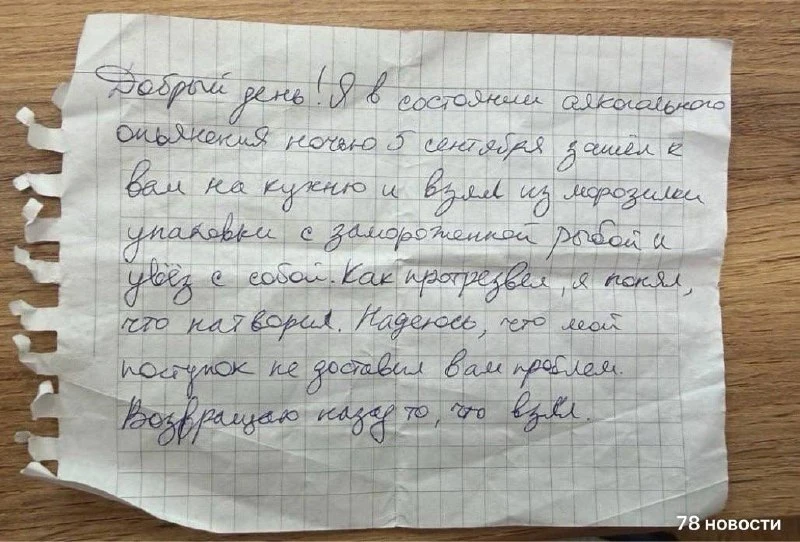 Добрый день! Я в состоянии алкогольного
опьянения ночью 5 сентября зашёл к
вам на кухню и взял из морозилки
упаковки с замороженной рыбой и
увёз с собой. Как протрезвел, я понял,
что натворил. Надеюсь, что мой
поступок не доставил вам проблем.
Возвращаю назад то, что взял.
78 новости